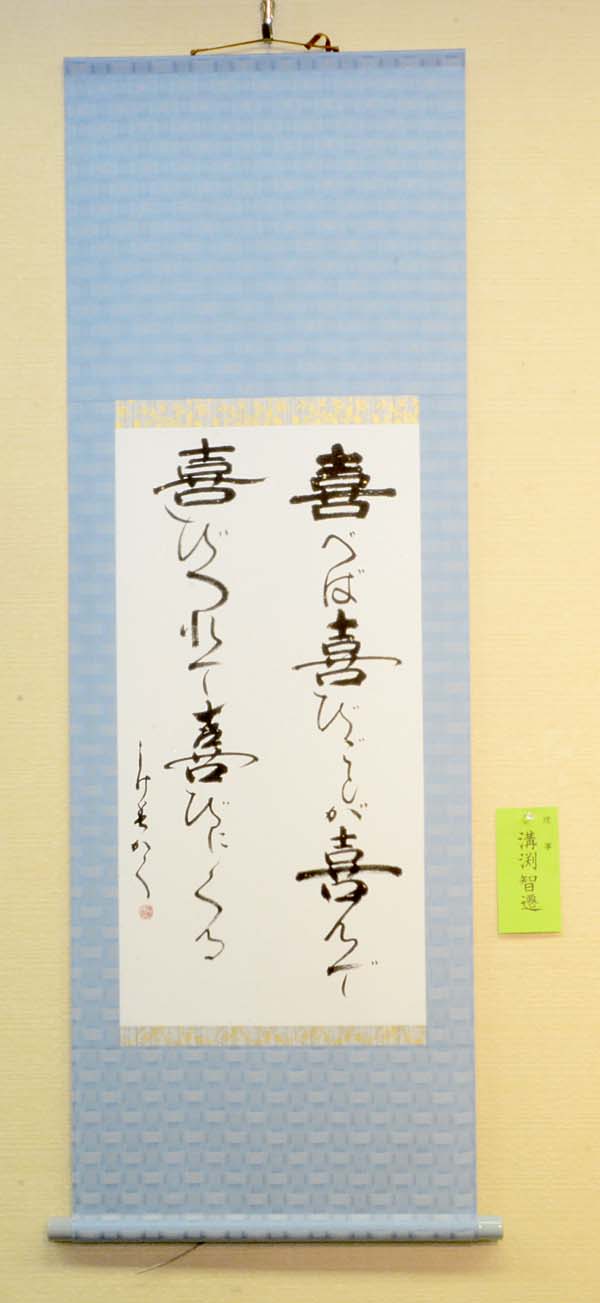 喜べば喜びごとが喜んで
喜びつれて喜びにくる
かく
理事
溝渕智遷